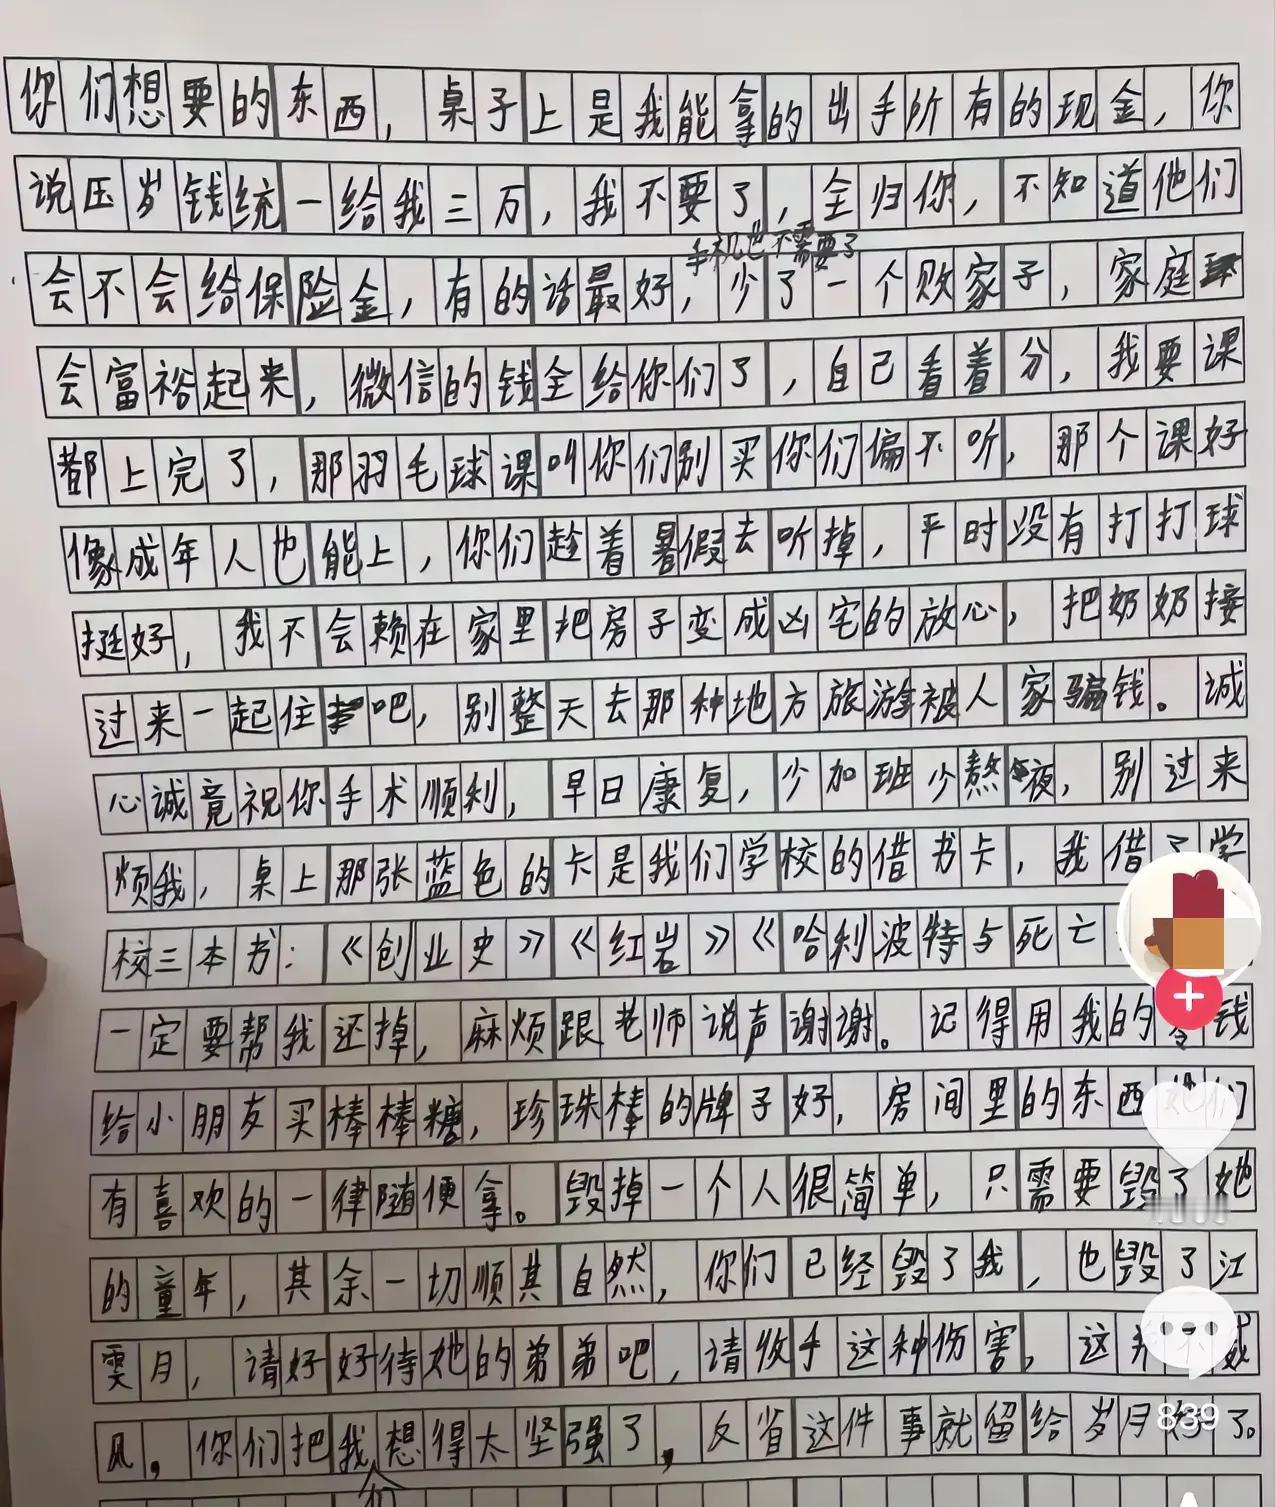 你们想要的东西，桌子上是我能拿的出手所有的现金，你
说压岁钱统一给我三万，我不要了，全归你，不知道他们
手机也不需要了
会不会给保险金，有的话最好，少了一个败家子，家庭
会富裕起来，微信的钱全给你们了，自己看着分，我要课
都上完了，那羽毛球课叫你们别买你们偏不听，那个课好
像成年人也能上，你们趁着暑假去听掉，平时没有打打球
挺好，我不会赖在家里把房子变成凶宅的放心，把奶奶接
过来一起住吧，别整天去那种地方旅游被人家骗钱。诚
心诚竟祝你手术顺利，早日康复，少加班少熬夜，别过来
烦我，桌上那张蓝色的卡是我们学校的借书卡，我借了学
校三本书：《创业史》《红岩》《哈利波特与死亡
一定要帮我还掉，麻烦跟老师说声谢谢。记得用我的零钱
给小朋友买棒棒糖，珍珠棒的牌子好，房间里的东西她们
有喜欢的一律随便拿。毁掉一个人很简单，只需要毁了她
的童年，其余一切顺其自然，你们已经毁了我，也毁了江
雯月，请好好待她的弟弟吧，请收手这种伤害，这并不威
风，你们把我想得太坚强了，反省这件事就留给岁月好了。
们
839